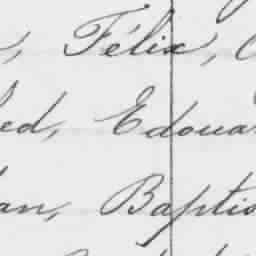 , Félix,
ed, Edoua
an, Baptis